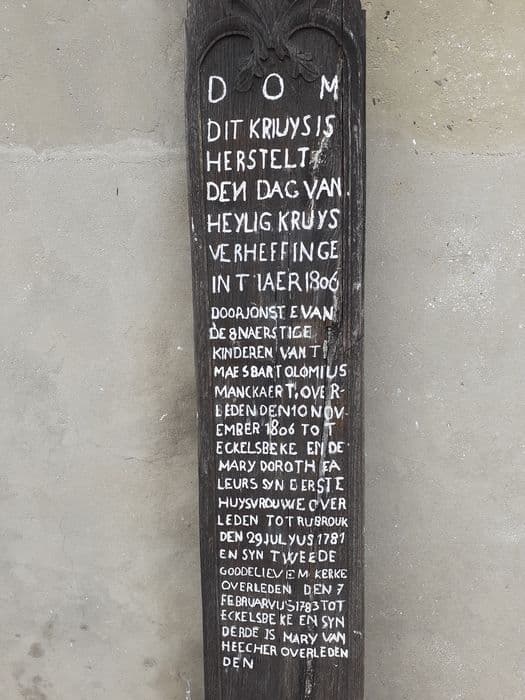 D O M
DIT KRIUYS IS
HERSTELT
DEN DAG VAN
HEYLIG KRUYS
VERHEFFINGE
IN T IAER 1806
DOOR JONSTE VAN
DE 8 NAERSTIGE
KINDEREN VAN T
MAES BARTOLOMIUS
MANCKAERT, OVER-
LEDEN DEN 10 NOV-
EMBER 1806 TOT
ECKELSBEKE EN DE
MARY DOROTHEA
LEURS SYN EERSTE
HUYSVROUWE OVER
LEDEN TOT RUBROUK
DEN 29 JULYUS 1781
EN SYN TWEEDE
GODDELIEVE M KERKE
OVERLEDEN DEN 7
FEBRUARVUS 1783 TOT
ECKELSBEKE EN SYN
DERDE IS MARY VAN
HEECHER OVERLEDEN
DEN